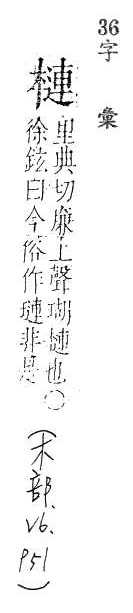 36字 彙
槤
里典切廉上聲瑚槤也〇
徐鉉曰今俗作璉非是
(木部, v6, p51)